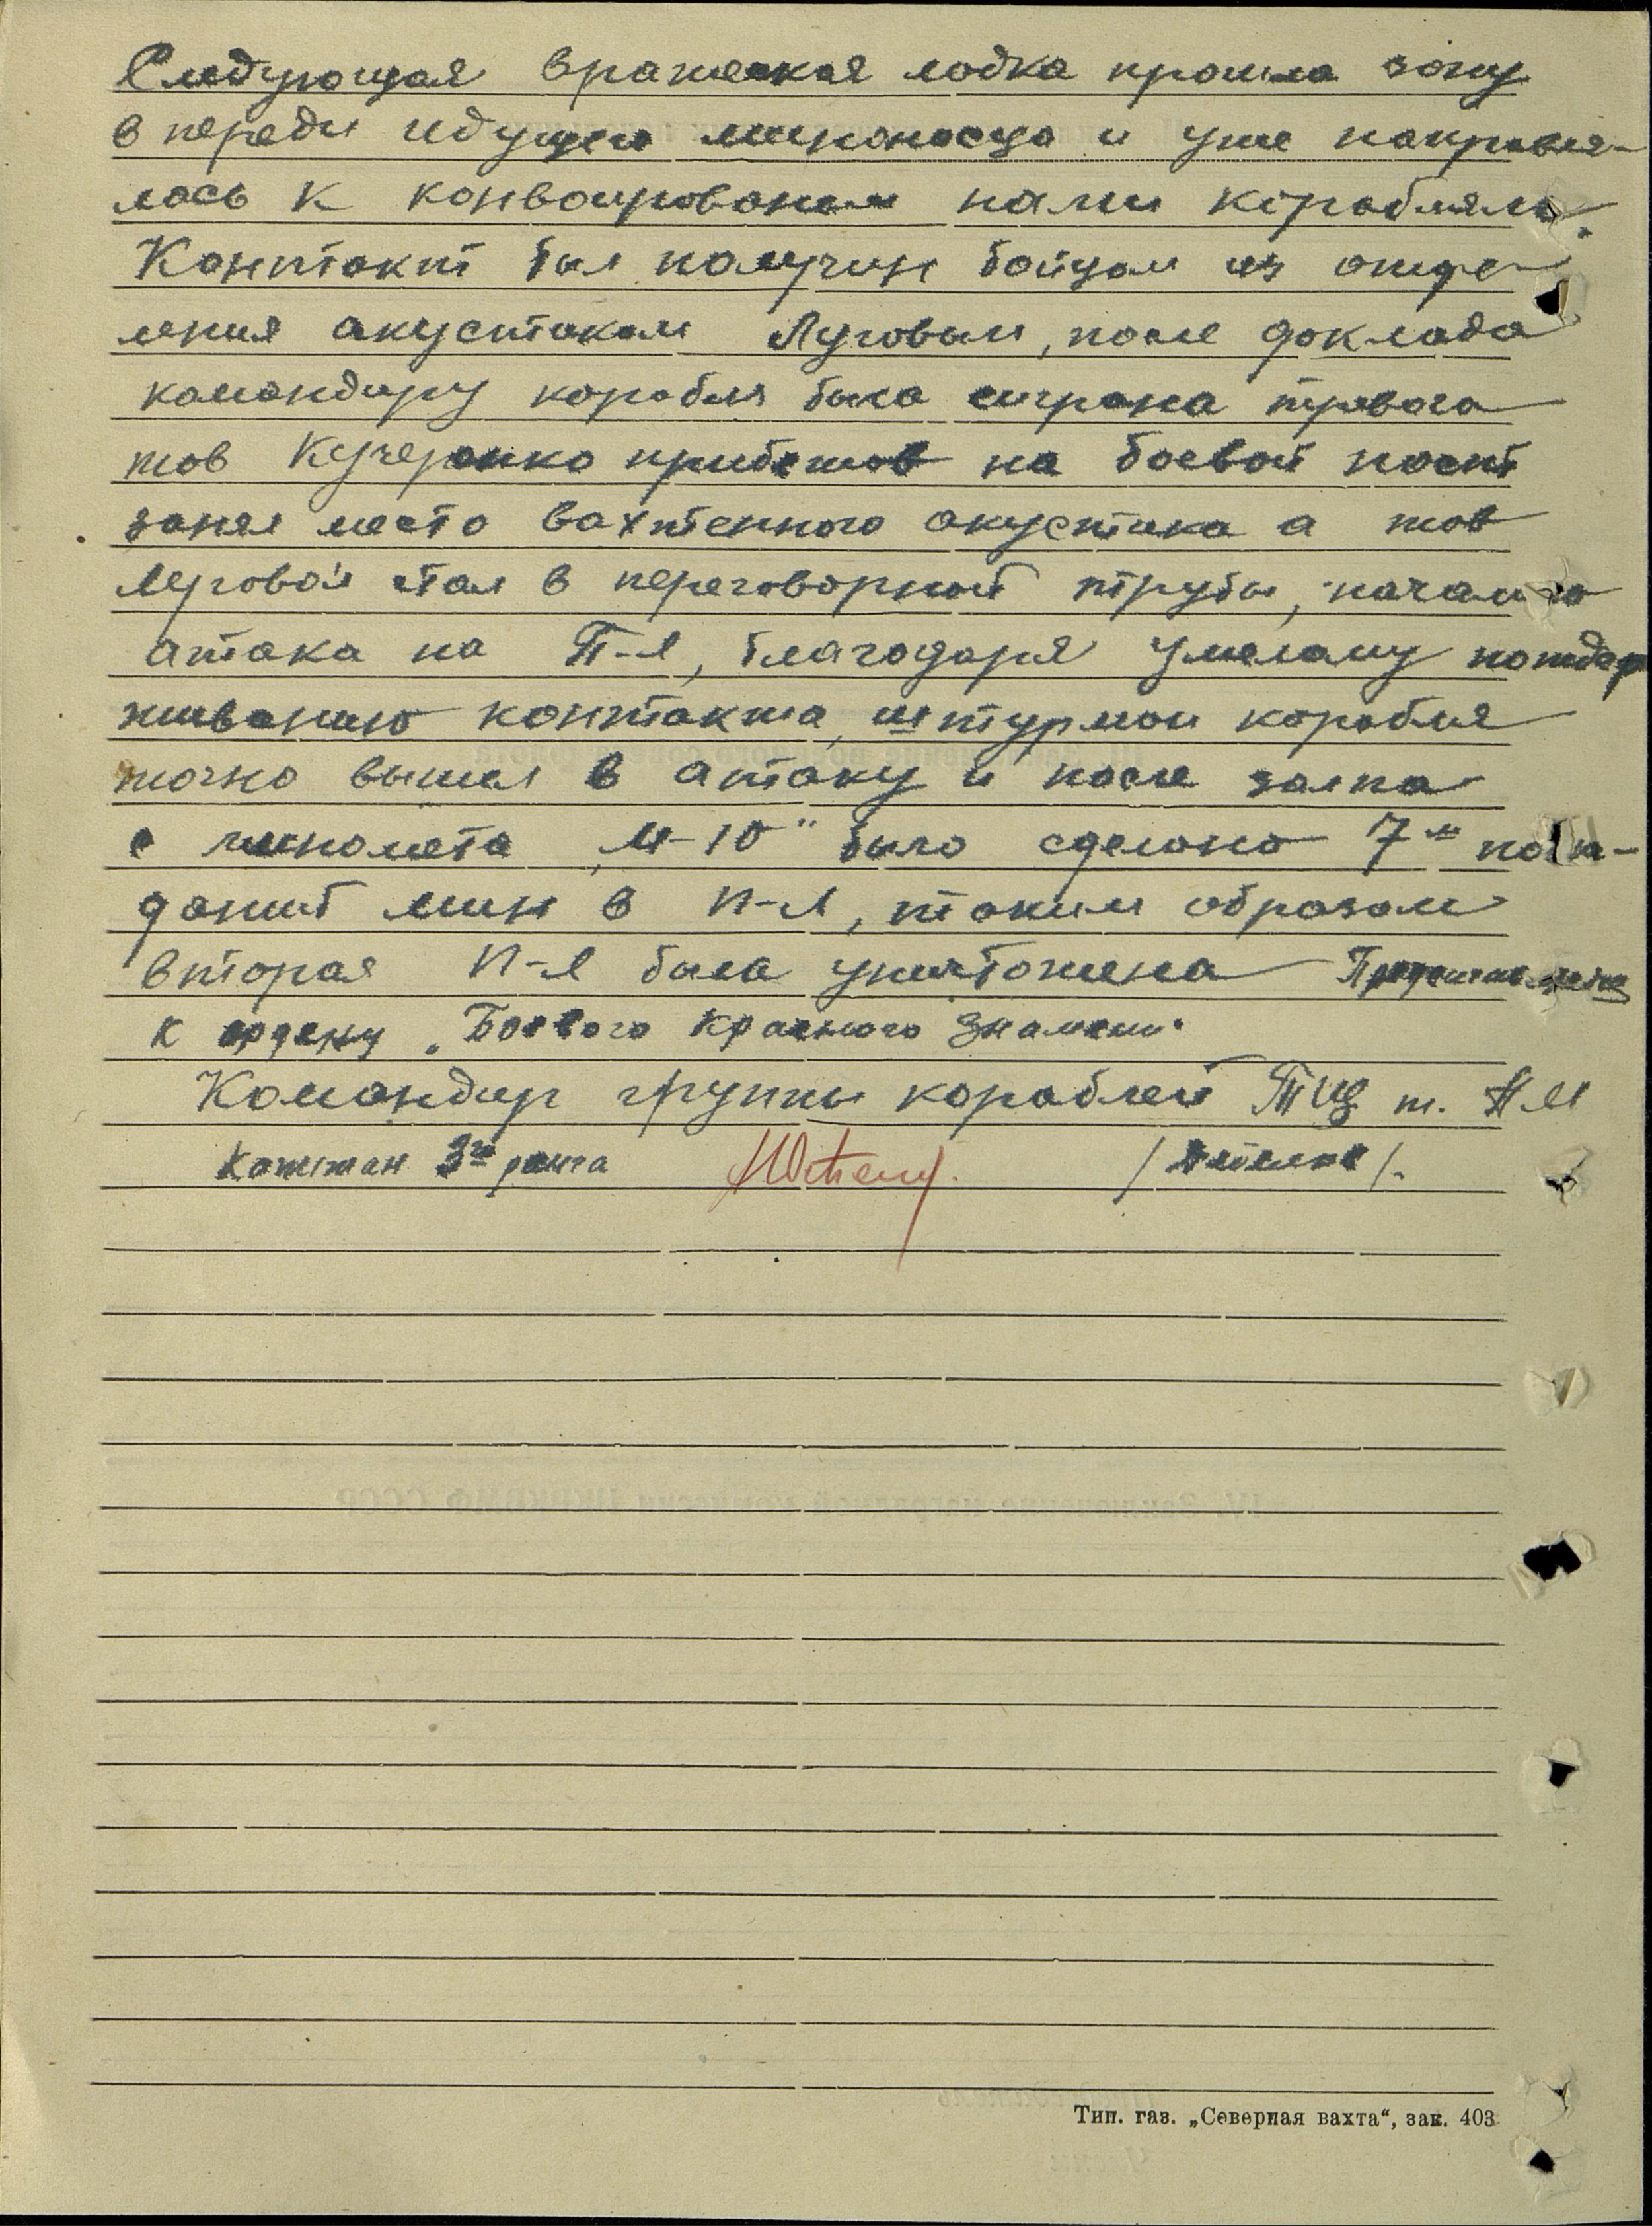 Следующая вражеская лодка прошла зону
в переди идущего миноносца и уже направля-
лось к конвоированом нами кораблям.
Контакт был получин бойцом из отде-
ления акустиком Луговым, после доклада
командиру корабля была сиграна тревога
тов Кучеренко прибежав на боевой пост
занял место вахтенного акустика а тов
Луговой стал в переговорной трубы, началась
атака на П-Л, благодаря умелому поддер
живанию контакта, штурман корабля
точно вышел в атаку и после залпа
с миномета „М-10" было сделано 7м
даний мин в П-Л, таким образом
вторая П-Л была уништожена Представление
к ордену „Боевого Красного Знамени"
Командир группы кораблей ТЩ т. АМ
Капитан 3го ранга
Тип. газ. „Северная вахта“, зак. 403